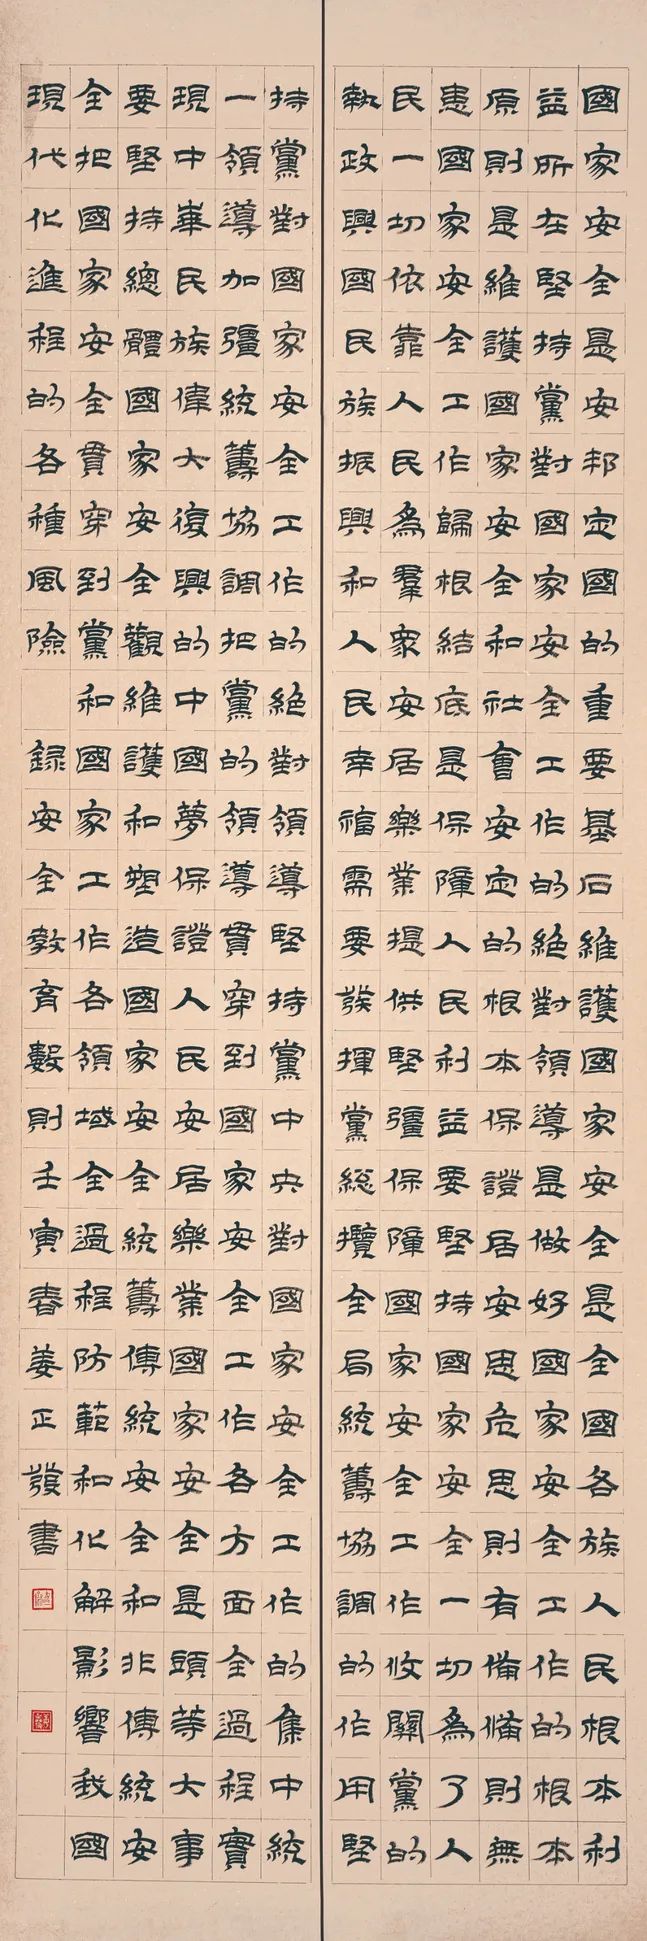 國家安全是安邦定國的重要基石維護國家安全是全國各族人民根本利
益所在堅持黨對國家安全工作的絕對領導是做好國家安全工作的根本
原則是維護國家安全和社會安定的根本保證居安思危思則有備備則無
患國家安全工作歸根結底是保障人民利益要堅持國家安全一切為了人
民一切依靠人民為羣眾安居樂業提供堅彊保障國家安全工作攸關黨的
執政興國民族振興和人民幸福需要發揮黨總攬全局統籌協調的作用堅
持黨對國家安全工作的絕對領導堅持黨中央對國家安全工作的集中統
一領導加彊統籌協調把黨的領導貫穿到國家安全工作各方面全過程實
現中華民族偉大復興的中國夢保證人民安居樂業國家安全是頭等大事
要堅持總體國家安全觀維護和塑造國家安全統籌傳統安全和非傳統安
全把國家安全貫穿到黨和國家工作各領域全過程防範和化解影響我國
現代化進程的各種風險 錄安全教育數則壬寅春姜正發書